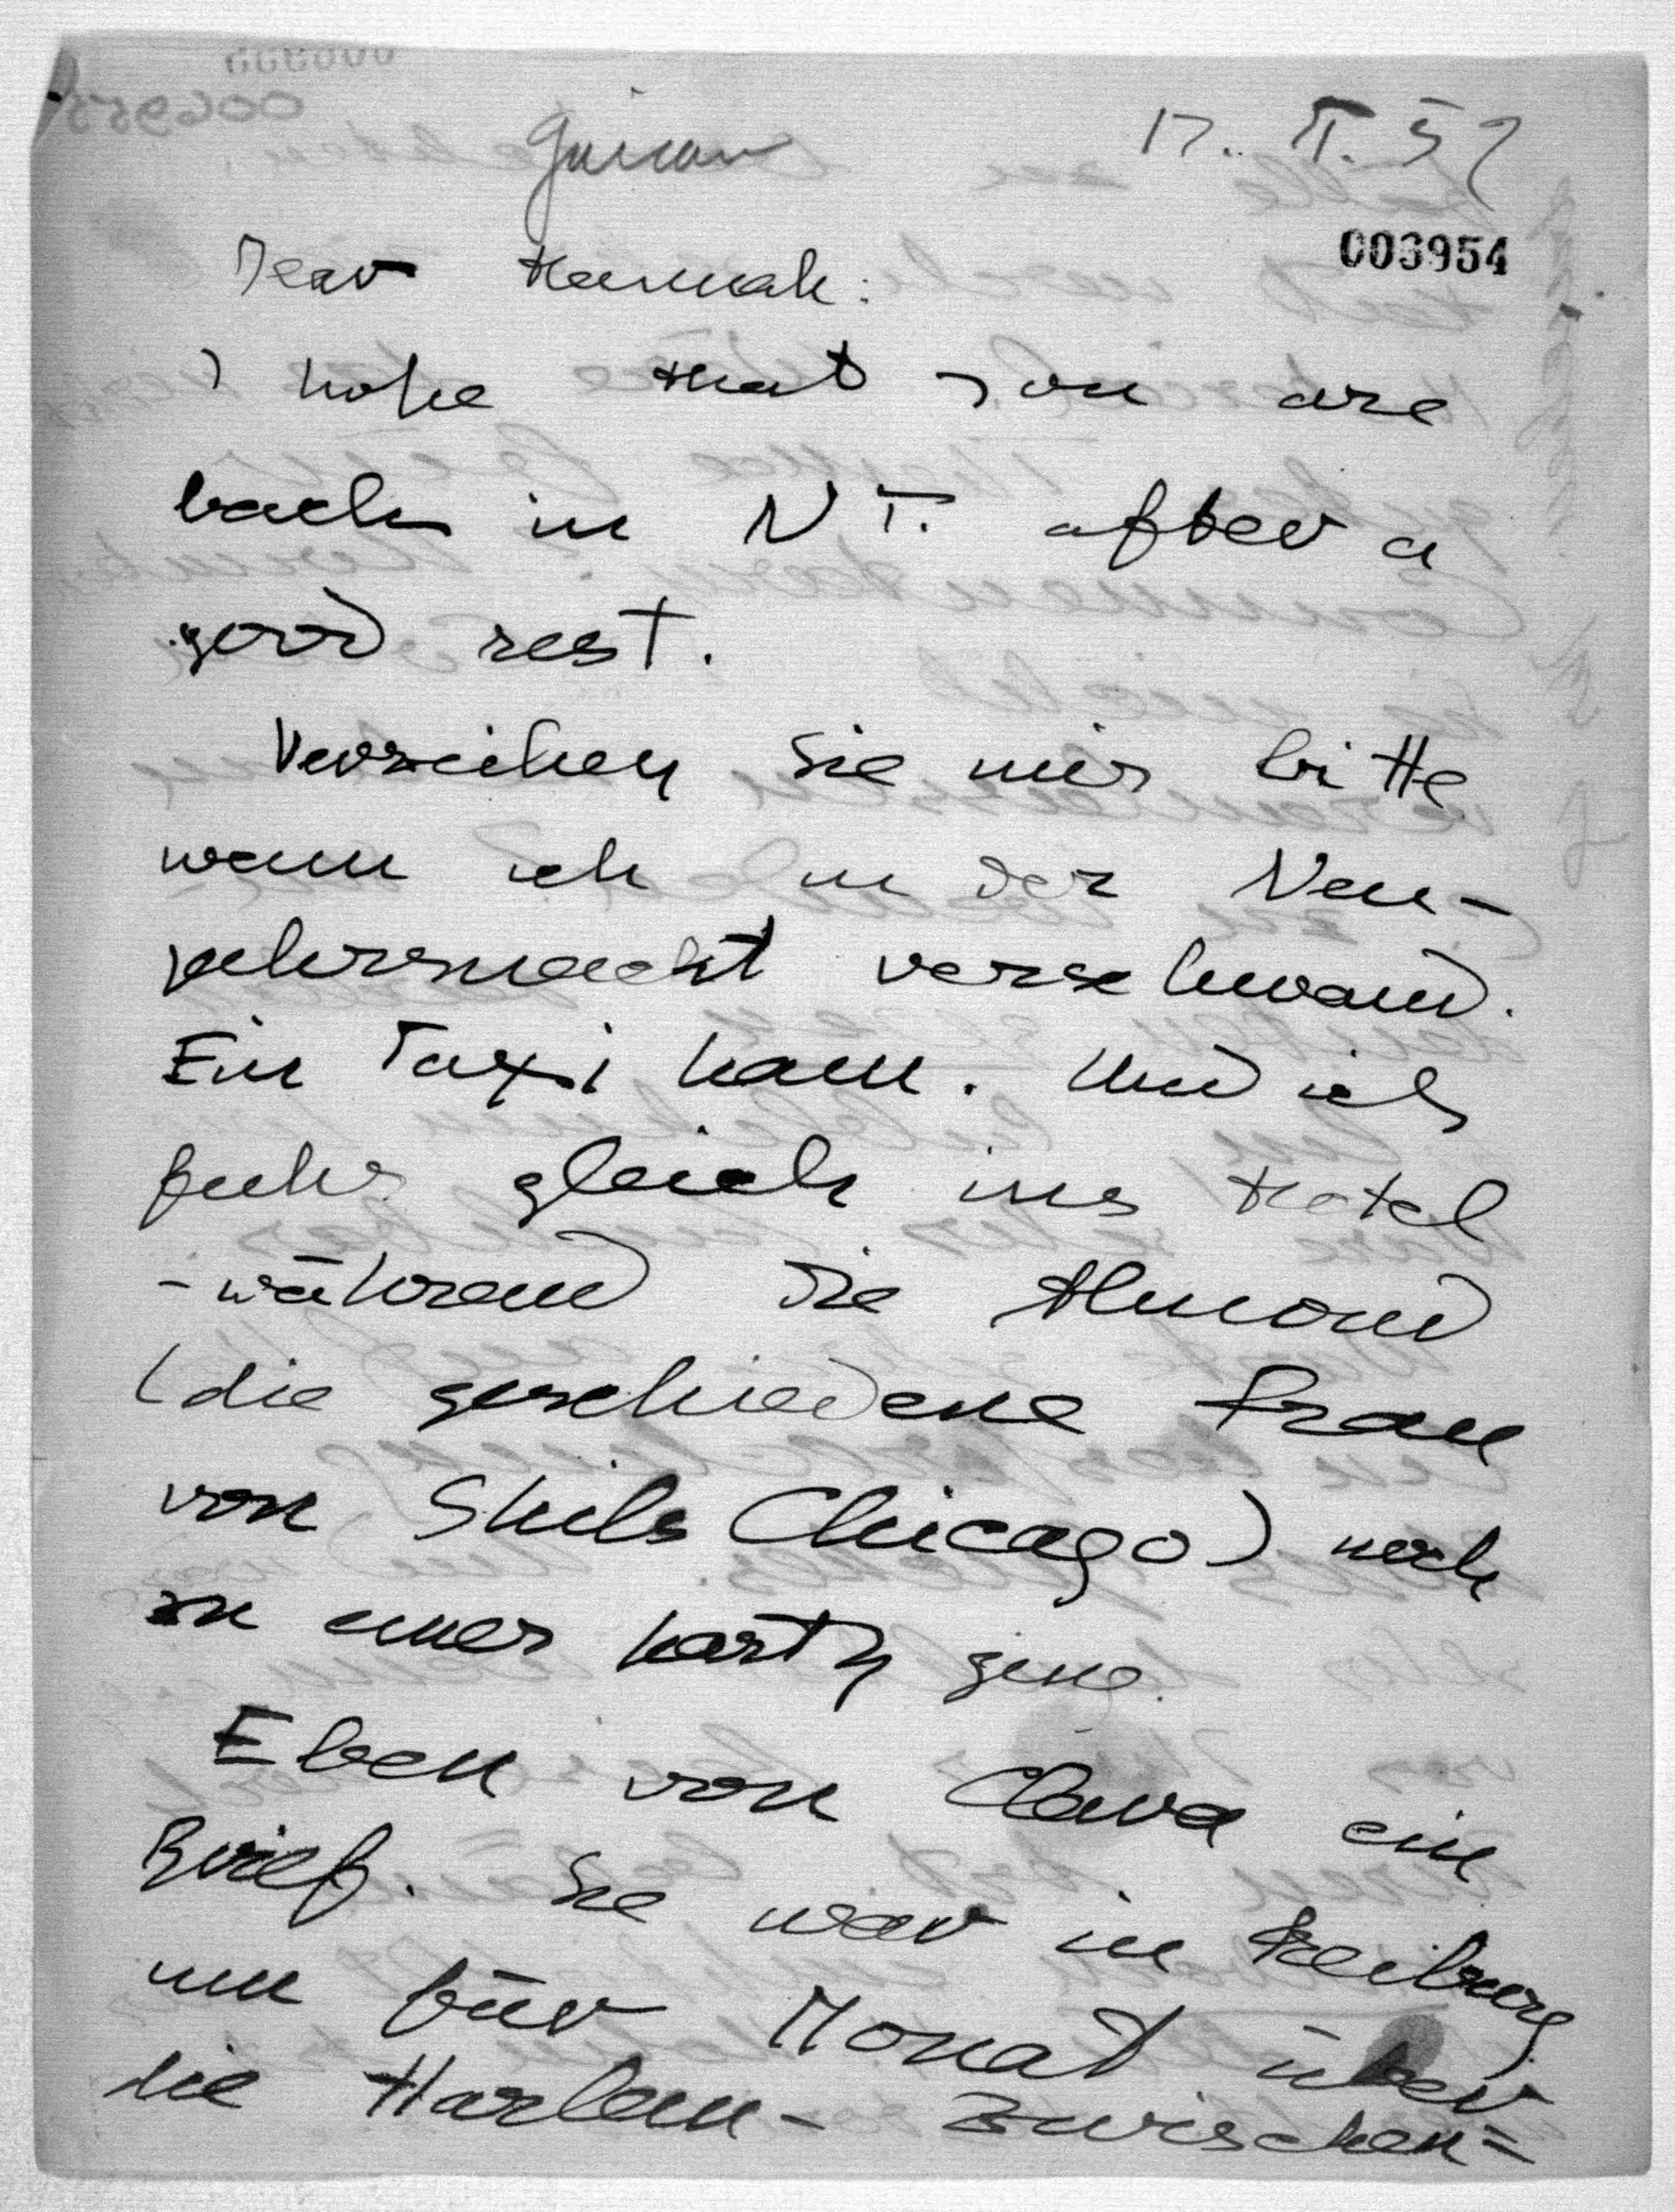 Gurian
17. II. 52
003954
Dear Hannah:
I hope that you are
back in N Y. after a
good rest.
Verzeihen Sie mir bitte
wenn ich in der Neu-
jahrsnacht verschwand.
Ein Taxi kam. Und ich
fuhr gleich ins Hotel
- während die Almond
(die geschiedene Frau
von Shils Chicago) noch
zu einer Party ging.
Eben von Clara ein
Brief. Sie war in Freiburg
um für Monat über
die Harlan- Zwischen-